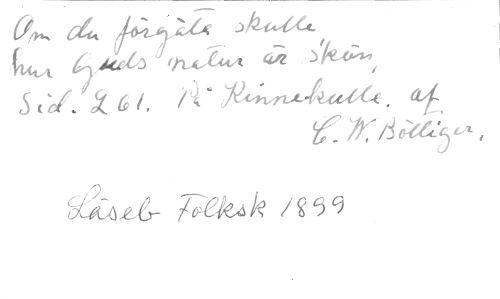 Om du förgäta skulle
hur Guds natur är skön,
Sid. 261. På Kinnekulle. af
C. W. Böttiger.
Läseb Folksk 1899